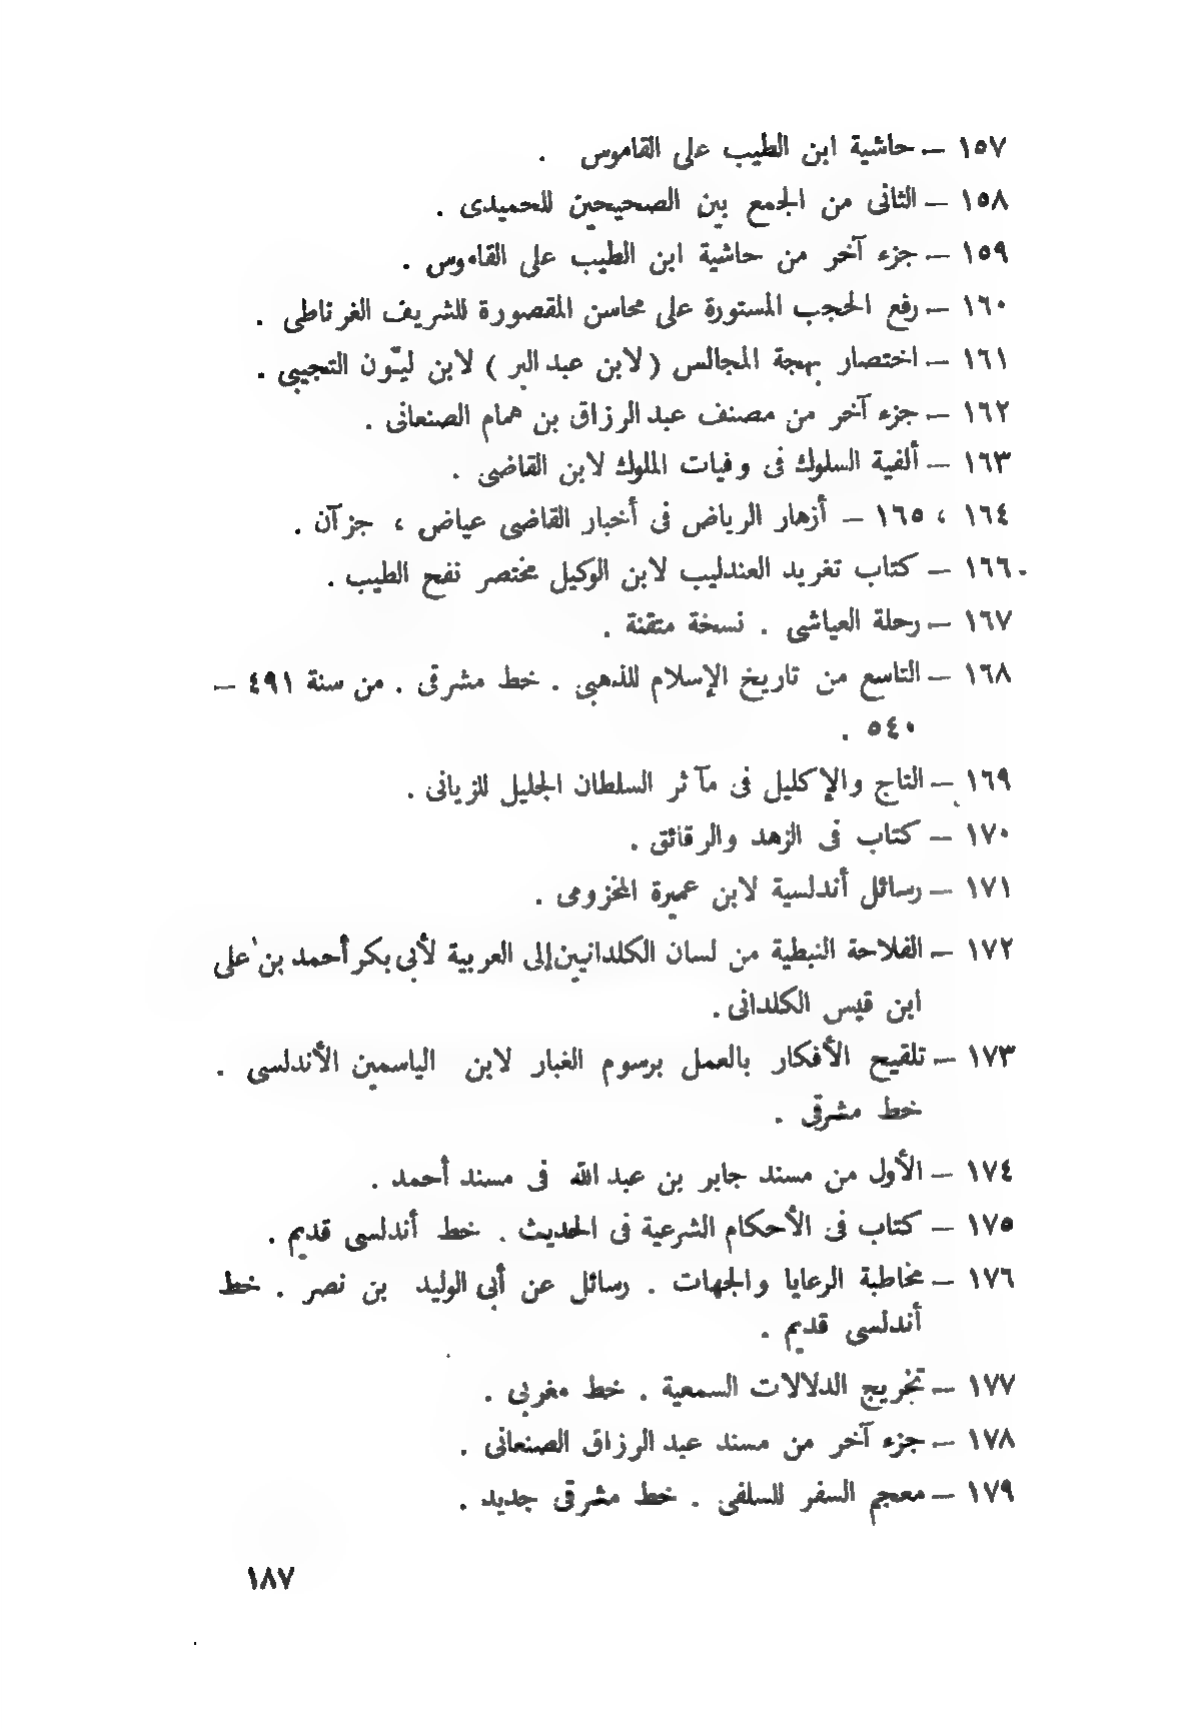 ١٥٧ – حاشية ابن الطيب على القاموس .
١٥٨ – الثانى من الجمع بين الصحيحين للحميدى .
١٥٩ – جزء آخر من حاشية ابن الطيب على القاموس .
١٦٠ – رفع الحجب المستورة على محاسن المقصورة للشريف الغرناطى .
١٦١ – اختصار بهجة المجالس ( لابن عبد البر ) لابن ليّون التجيبى .
١٦٢ – جزء آخر من مصنف عبد الرزاق بن همام الصنعانى .
١٦٣ – ألفية السلوك فى وفيات الملوك لابن القاضى .
١٦٤ ، ١٦٥ – أزهار الرياض فى أخبار القاضى عياض ، جزآن .
١٦٦ – كتاب تغريد العندليب لابن الوكيل مختصر نفح الطيب .
١٦٧ – رحلة العياشى . نسخة متقنة .
١٦٨ – التاسع من تاريخ الإسلام للذهبى . خط مشرقى . من سنة ٤٩١ –
٥٤٠ .
١٦٩ – التاج والإكليل فى مآثر السلطان الجليل للزيانى .
١٧٠ – كتاب فى الزهد والرقائق .
١٧١ – رسائل أندلسية لابن عميرة المخزومى .
١٧٢ – الفلاحة النبطية من لسان الكلدانيين إلى العربية لأبى بكر أحمد بن على
ابن قيس الكلدانى .
١٧٣ – تلقيح الأفكار بالعمل برسوم الغبار لابن الياسمين الأندلسى .
خط مشرقى .
١٧٤ – الأول من مسند جابر بن عبد الله فى مسند أحمد .
١٧٥ – كتاب فى الأحكام الشرعية فى الحديث . خط أندلسى قديم .
١٧٦ – مخاطبة الرعايا والجهات . رسائل عن أبى الوليد بن نصر . خط
أندلسى قديم .
١٧٧ – تخريج الدلالات السمعية . خط مغربى .
١٧٨ – جزء آخر من مسند عبد الرزاق الصنعانى .
١٧٩ – معجم السفر للسلفى . خط مشرقى جديد .
١٨٧